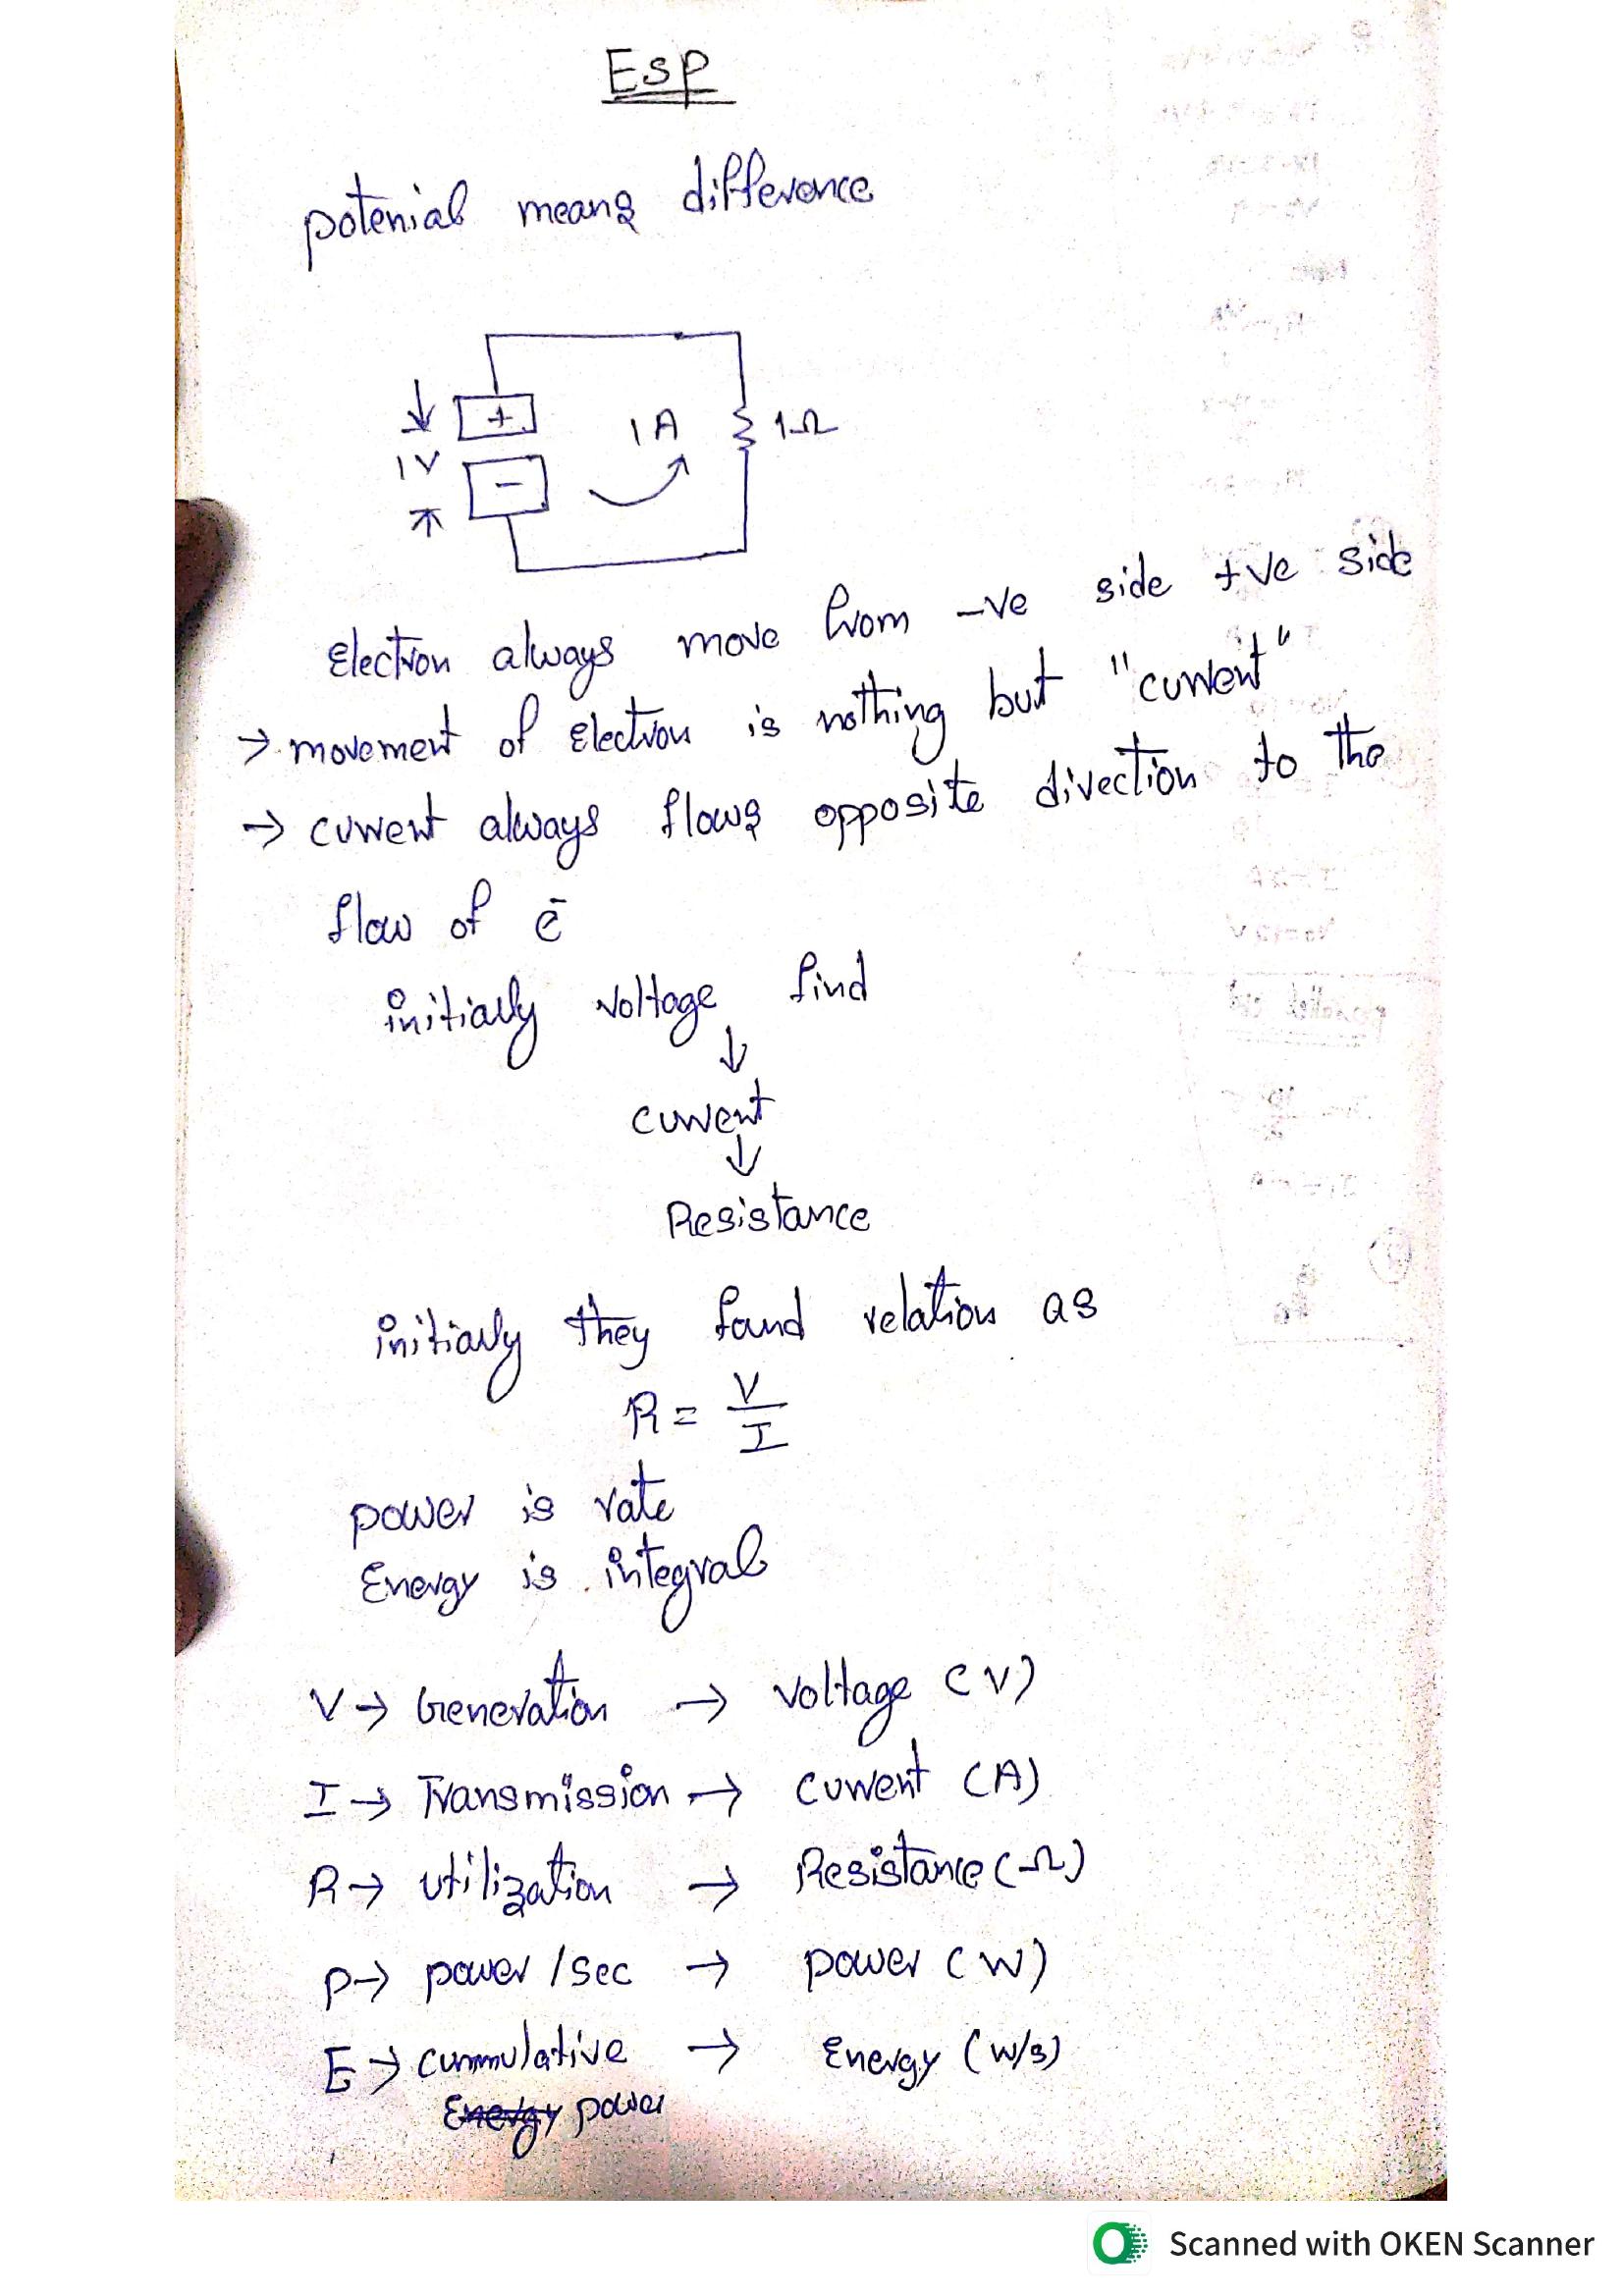 Esp
potenial means difference
+
1V
-
1 A
1Ω
Electron always move from -ve side +ve side
→ movement of Electron is nothing but "current"
→ current always flows opposite direction to the
flow of ē
initially voltage find
↓
current
↓
Resistance
initially they found relation as
R = V/I
power is rate
Energy is integral
V → Generation → voltage (V)
I → Transmission → current (A)
R → utilization → Resistance (Ω)
P → power / sec → power (W)
E → cummulative → Energy (W/s)
Energy power
Scanned with OKEN Scanner